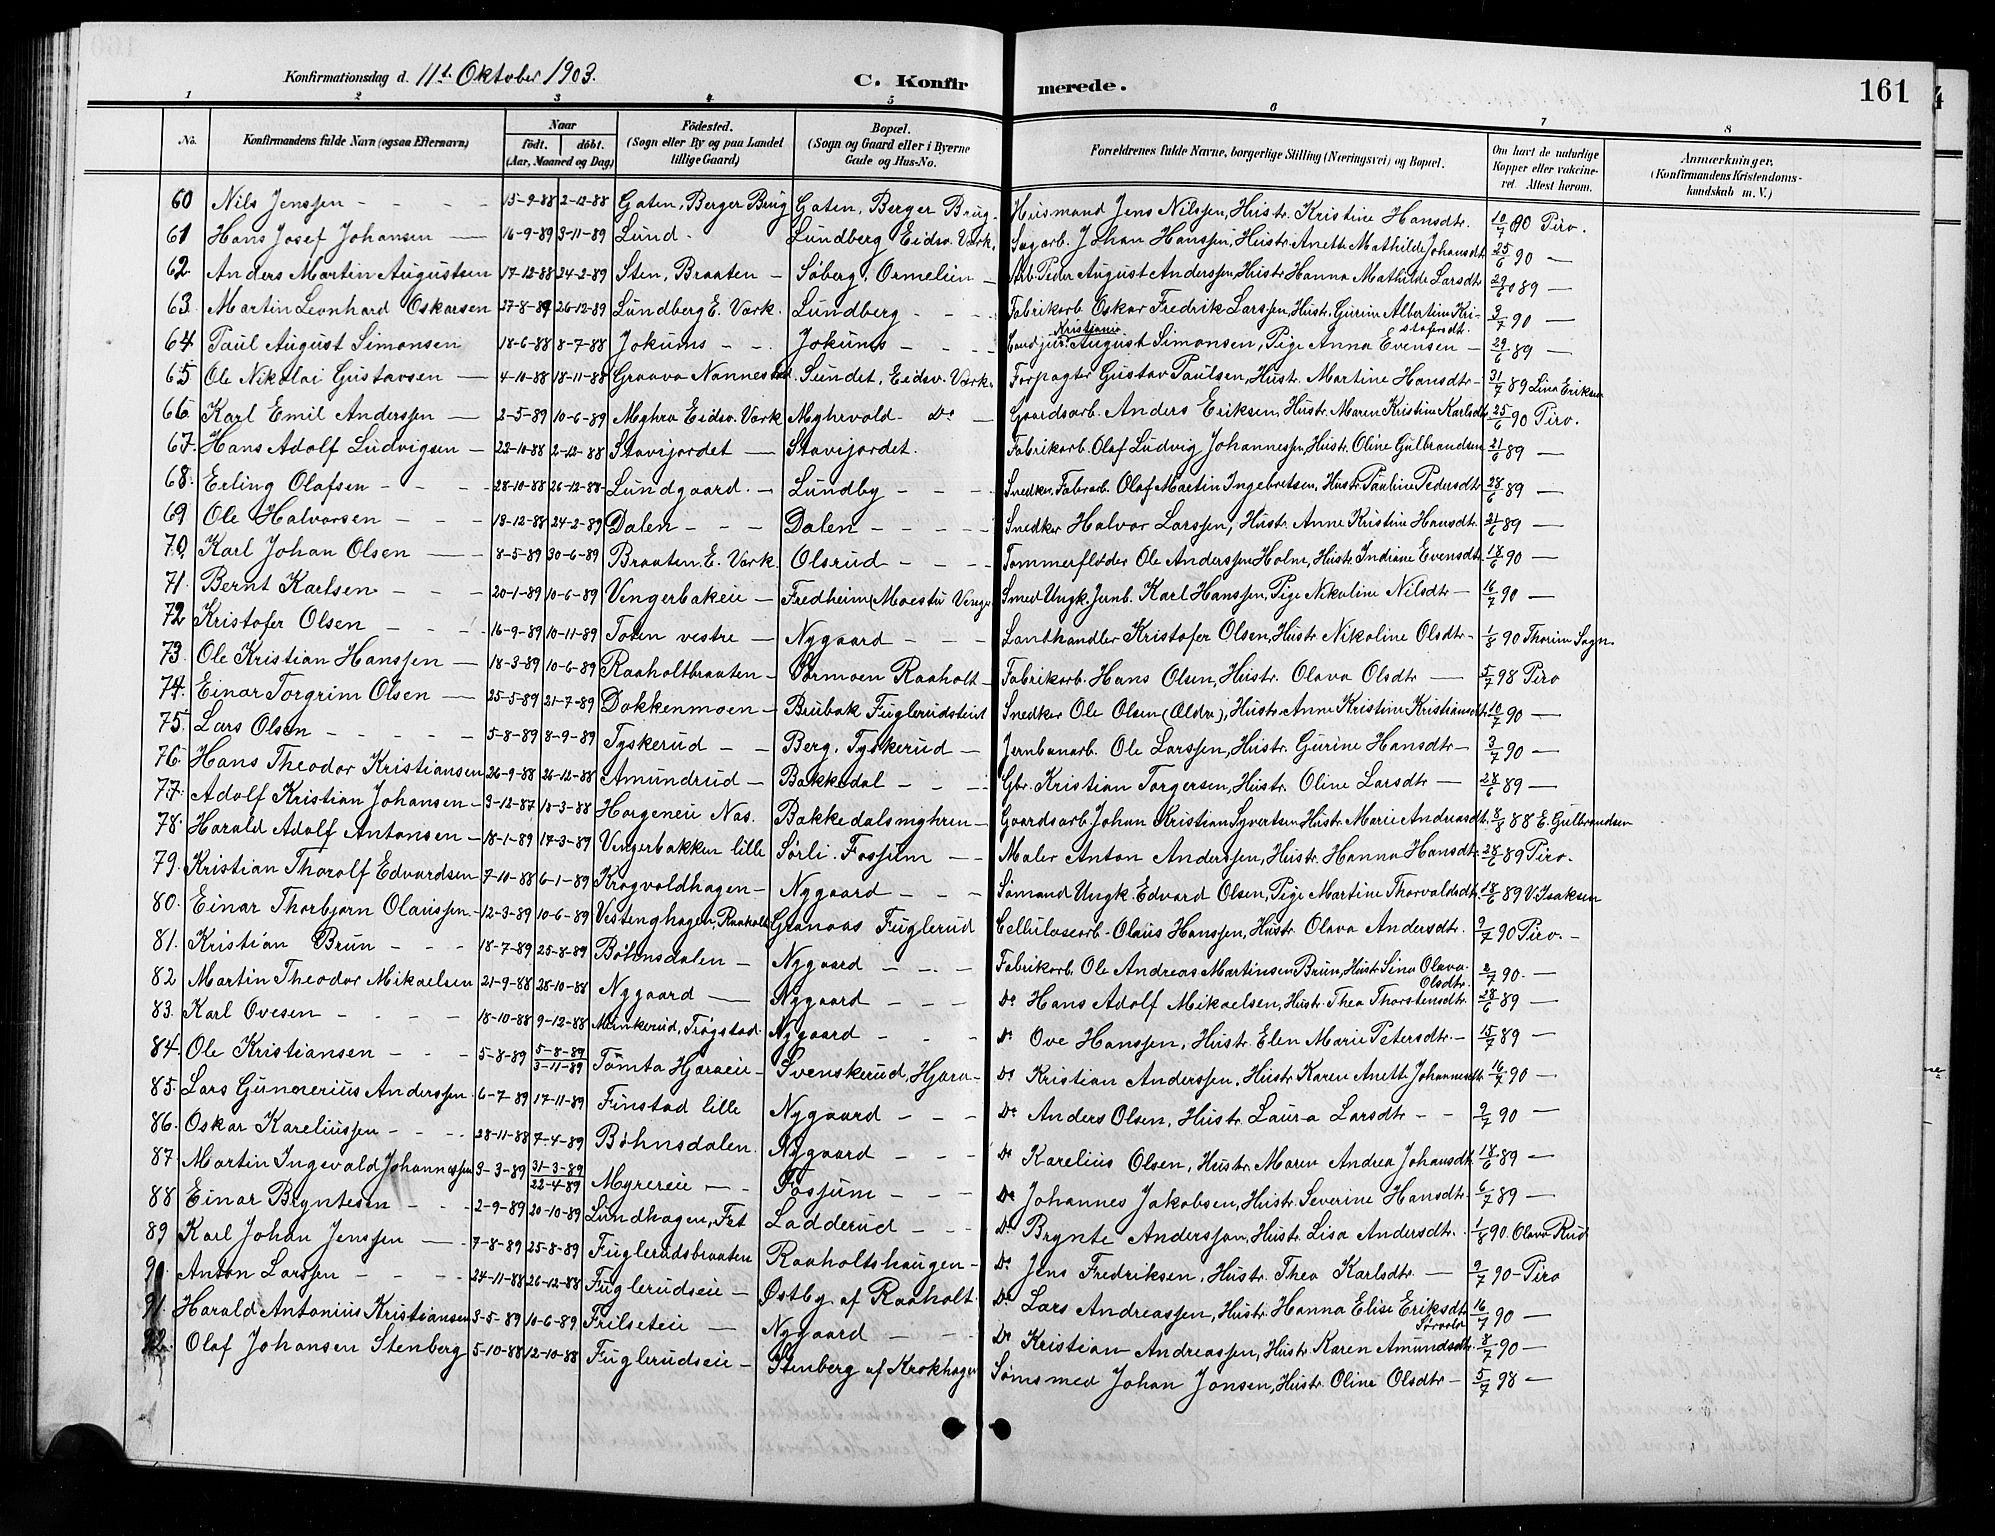 Konfirmationsdag d. 11te Oktober 1903. C. Konfirmerede. 161
1 2 3 4 5 6 7 8
No. Konfirmandens fulde Navn (ogsaa Efternavn) Naar födt. döbt. (Aar, Maaned og Dag) Födested. (Sogn eller By og paa Landet tillige Gaard) Bopæl. (Sogn og Gaard eller i Byerne Gade og Hus-No. Forældrenes fulde Navne, borgerlige Stilling (Næringsvei) og Bopæl. Om havt de naturlige Kopper eller vakcineret. Attest herom. Anmærkninger. (Konfirmandens Kristendomskundskab m. V.)
60 Nils Jenssen - 15-9-88 2-12-88 Gaten, Berger Brug Gaten, Berger Brug. Husmand Jens Nilssen, Hustr. Kristine Hansdtr. 10/7 90 Piro.
61 Hans Josef Johansen — 16-9-89 3-11-89 Lund. Lundberg Eidsv. Værk. Sagarb. Johan Hanssen, Hustr. Anette Mathilde Johansdt. 25/6 90 —
62 Anders Martin Augustsen 17-12-88 24-2-89 Sten, Braaten — Söberg, Ormelien — Arb. Peder August Anderssen, Hustr. Hanna Mathilde Larsdtr 29/6 89 —
63. Martin Leonhard Oskarsen 27-8-89 26-12-89 Lundberg E. Værk. Lundberg - Fabrikarb. Oskar Fredrik Larssen, Hustr. Gurine Albertine Kristofersdt. 3/7 90 —
64. Paul August Simonsen 18-6-88 8-7-88 Jokums - Jokums - August Simonsen, Pige Anna Evensen — 29/6 89 —
Kristiania
65 Ole Nikolai Gustavsen — 4-10-88 18-11-88 Graava Nannestad. Sundet, Eidsv. Værk. Forpagter Gustav Paulsen, Hustr. Martine Hansdtr - 31/7 89 Lina Eriksen
66. Karl Emil Anderssen — 2-5-89 10-6-89 Myhra Eidsv. Værk Myhrvold - Do — Gaardsarb. Anders Eriksen, Hustr. Maren Kristine Karlsdtr 25/6 90 Piro.
67. Hans Adolf Ludvigsen — 22-10-88 2-12-88 Stavijordet — Stavijordet. Fabrikarb. Olaf Ludvig Johannessen, Hustr. Oline Gulbrandsen 21/6 89 —
68. Erling Olafsen - 28-10-88 26-12-88 Lundgaard. - Lundby - Snedker, Fabrarb. Olaf Martin Ingebretsen, Hustr. Pauline Pedersdtr 28/6 89 —
69 Ole Halvorsen - 18-12-88 24-2-89 Dalen - Dalen - Snedker Halvor Larssen, Hustr. Anne Kristine Hansdtr. 21/6 89 —
70. Karl Johan Olsen — 8-5-89 30-6-89 Braaten E. Værk. Olsrud - Tømmerfløder Ole Anderssen Holm, Hustr. Indiane Evensdtr. 18/6 90 —
71. Bernt Karlsen - 20-1-89 10-6-89 Vengerbakeie — Fredheim (Moestu Venger Smed Ungk. Jernb. Karl Hanssen, Pige Nikoline Nilsdtr — 16/7 90 —
72. Kristofer Olsen - 16-9-89 10-11-89 Toten vestre — Nygaard - Landhandler Kristofer Olsen, Hustr. Nikoline Olsdtr - 1/8 90 Thorine Sogn.
73. Ole Kristian Hanssen — 18-3-89 10-6-89 Raaholtbraaten - Ørmoen Raaholt - Fabrikarb. Hans Olsen, Hustr. Olava Olsdtr — 5/7 98 Piro
74. Einar Torgrim Olsen — 25-5-89 21-7-89 Dokkenmoen - Brubak Fuglerudsteiet Snedker Ole Olsen (Aldre), Hustr. Anne Kristine Kristiansdtr. 10/7 90 —
75. Lars Olsen - 5-8-89 8-9-89 Tyskerud - Berg, Tyskerud — Jernbanarb. Ole Larssen, Hustr. Gurine Hansdtr — 3/7 90 —
76. Hans Theodor Kristiansen 26-9-88 26-12-88 Amundrud - Bakkedal - Gbr. Kristian Torgersen, Hustr. Oline Larsdtr — 28/6 89 —
77. Adolf Kristian Johansen - 3-12-87 18-3-88 Horgeneie Næs. Bakkedalsmyhren — Gaardsarb Johan Kristian Syvertsen Hustr. Marie Andreasdt. 3/8 88 E. Gulbrandsen
78. Harald Adolf Antonsen - 18-1-89 17-3-89 Vengerbakken lille Sørli. Fossum — Maler Anton Anderssen, Hustr. Hanna Hansdtr. 28/6 89 Piro.
79. Kristian Thorolf Edvardsen 7-10-88 6-1-89 Krogvoldhagen - Nygaard - Sømand Ungk. Edvard Olsen, Pige Martine Thorvaldsdtr. 18/6 89 V. Isaksen
80. Einar Thorbjørn Olaussen - 12-3-89 10-6-89 Vestenghagen, Raaholt Granaas Fuglerud Cellulosearb - Olaus Hanssen, Hustr. Olava Andersdtr. 9/7 90 Piro. -
81. Kristian Brun - 18-7-89 25-8-89 Böhnsdalen — Nygaard - Fabrikarb. Ole Andreas Martinsen Brun, Hustr. Sina Olava Olsdtr. 2/7 90. —
82 Martin Theodor Mikaelsen 21-9-88 28-10-88 Nygaard — Nygaard - Do Hans Adolf Mikaelsen, Hustr. Thea Thorstensdtr. 28/6 89 —
83. Karl Ovesen - 18-10-88 9-12-88 Minkerud, Trögstad. Nygaard - Do Ove Hanssen, Hustr. Elen Marie Petersdtr. - 15/7 89 —
84. Ole Kristiansen - 5-8-89 5-8-89/3-11-89 Tömta Hjæraeie - Svenskerud, Hjæra - Do Kristian Anderssen, Hustr. Karen Anette Johannesdtr 16/7 90 —
85. Lars Gunnerius Anderssen 6-7-89 17-11-89 Finstad lille Nygaard - Do Anders Olsen, Hustr. Laura Larsdtr - 9/7 90 —
86. Oskar Kareliussen - 28-11-88 7-4-89 Böhnsdalen. Nygaard - Do Karelius Olsen, Hustr. Maren Andrea Johansdt. 18/6 89 —
87. Martin Ingevald Johannessen 3-3-89 31-3-89/22-4-89 Myrereie — Fossum - Do Johannes Jakobsen, Hustr. Severine Hansdtr - 6/7 89 —
88 Einar Bryntesen - 2-9-89 20-10-89 Lundhagen, Fet Ladderud - Do Brynte Anderssen, Hustr. Lisa Andersdtr. 1/8 90. Olava Rud
89 Karl Johan Jenssen — 7-8-89 25-8-89 Fuglerudsbraaten Raaholtshaugen - Do Jens Fredriksen, Hustr. Thea Karlsdtr. — 9/7 90 - Piro
90. Anton Larssen - 24-11-88 26-12-88 Fuglerudseie — Østby af Raaholt. Do Lars Andreassen, Hustr. Hanna Elise Eriksdt 16/7 90 —
91. Harald Antonius Kristiansen 3-5-89 10-6-89 Frilseteie — Nygaard - Do Kristian Andreassen, Hustr. Karen Amundsdtr. 8/7 90 —
92. Olaf Johansen Stenberg 5-10-88 12-10-88 Fuglerudseie - Stenberg af Krokhagen Sömsmed Johan Jonsen, Hustr. Oline Olsdtr - 5/7 98 —